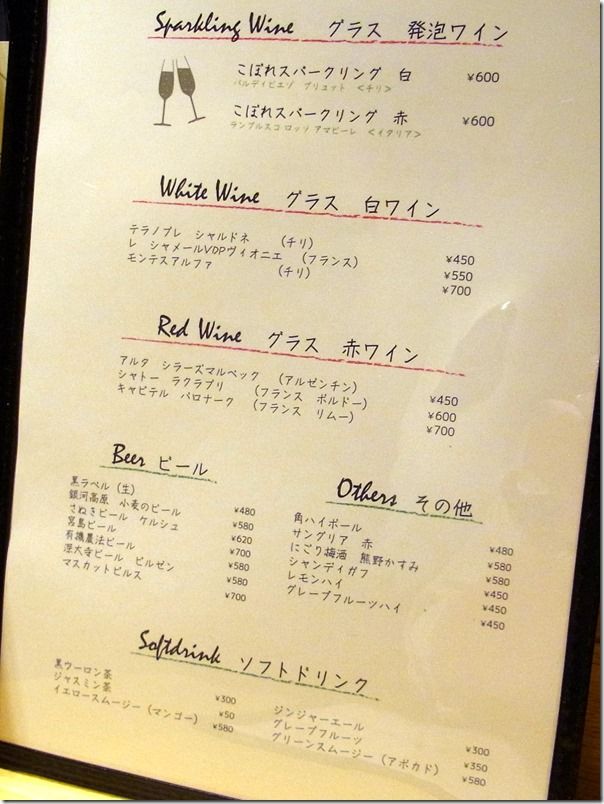 Sparkling Wine グラス 発泡ワイン
こぼれスパークリング 白 ¥600
バルディビエゾ ブリュット <チリ>
こぼれスパークリング 赤 ¥600
ランブルスコ ロッソ アマビーレ <イタリア>
White Wine グラス 白ワイン
テラノブレ シャルドネ (チリ) ¥450
レ シャメールVDPヴィオニエ (フランス) ¥550
モンテスアルファ (チリ) ¥700
Red Wine グラス 赤ワイン
アルタ シラーズマルベック (アルゼンチン) ¥450
シャトー ラクラブリ (フランス ボルドー) ¥600
キャピテル バロナーク (フランス リムー) ¥700
Beer ビール
黒ラベル (生) ¥480
銀河高原 小麦のビール ¥580
さぬきビール ケルシュ ¥620
宮島ビール ¥700
有機農法ビール ¥580
深大寺ビール ピルゼン ¥580
マスカットピルス ¥700
Others その他
角ハイボール ¥480
サングリア 赤 ¥580
にごり梅酒 熊野かすみ ¥580
シャンディガフ ¥450
レモンハイ ¥450
グレープフルーツハイ ¥450
Softdrink ソフトドリンク
黒ウーロン茶 ¥300
ジャスミン茶 ¥50
イエロースムージー (マンゴー) ¥580
ジンジャーエール ¥300
グレープフルーツ ¥350
グリーンスムージー (アボカド) ¥580